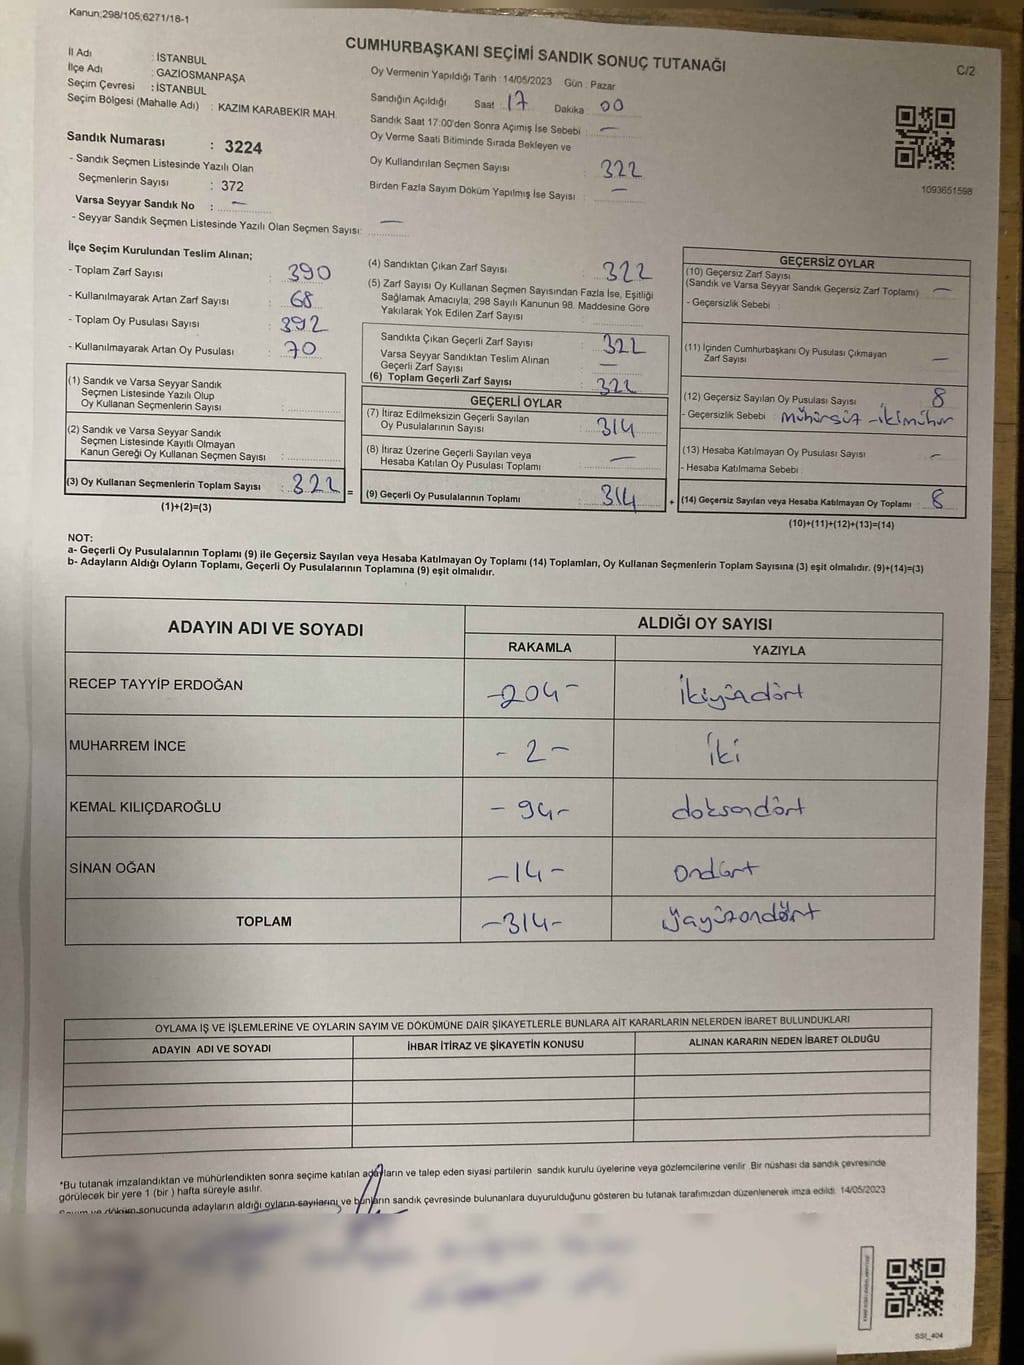 Kanun;298/105;6271/18-1
CUMHURBAŞKANI SEÇİMİ SANDIK SONUÇ TUTANAĞI
C/2
İl Adı : İSTANBUL
İlçe Adı : GAZİOSMANPAŞA
Seçim Çevresi : İSTANBUL
Seçim Bölgesi (Mahalle Adı) : KAZIM KARABEKİR MAH.
Oy Vermenin Yapıldığı Tarih : 14/05/2023 Gün : Pazar
Sandığın Açıldığı Saat 17 Dakika 00
Sandık Saat 17:00'den Sonra Açımış İse Sebebi : —
Oy Verme Saati Bitiminde Sırada Bekleyen ve
Oy Kullandırılan Seçmen Sayısı : 322
Birden Fazla Sayım Döküm Yapılmış İse Sayısı : —
1093651598
Sandık Numarası : 3224
- Sandık Seçmen Listesinde Yazılı Olan
Seçmenlerin Sayısı : 372
Varsa Seyyar Sandık No : —
- Seyyar Sandık Seçmen Listesinde Yazılı Olan Seçmen Sayısı: —
İlçe Seçim Kurulundan Teslim Alınan;
- Toplam Zarf Sayısı : 390
- Kullanılmayarak Artan Zarf Sayısı : 68
- Toplam Oy Pusulası Sayısı : 392
- Kullanılmayarak Artan Oy Pusulası : 70
(1) Sandık ve Varsa Seyyar Sandık
Seçmen Listesinde Yazılı Olup
Oy Kullanan Seçmenlerin Sayısı :
(2) Sandık ve Varsa Seyyar Sandık
Seçmen Listesinde Kayıtlı Olmayan
Kanun Gereği Oy Kullanan Seçmen Sayısı :
(3) Oy Kullanan Seçmenlerin Toplam Sayısı : 322 =
(1)+(2)=(3)
(4) Sandıktan Çıkan Zarf Sayısı : 322
(5) Zarf Sayısı Oy Kullanan Seçmen Sayısından Fazla İse, Eşitliği
Sağlamak Amacıyla; 298 Sayılı Kanunun 98. Maddesine Göre
Yakılarak Yok Edilen Zarf Sayısı :
Sandıkta Çıkan Geçerli Zarf Sayısı : 322
Varsa Seyyar Sandıktan Teslim Alınan
Geçerli Zarf Sayısı : —
(6) Toplam Geçerli Zarf Sayısı : 322
GEÇERLİ OYLAR
(7) İtiraz Edilmeksizin Geçerli Sayılan
Oy Pusulalarının Sayısı : 314
(8) İtiraz Üzerine Geçerli Sayılan veya
Hesaba Katılan Oy Pusulası Toplamı : —
(9) Geçerli Oy Pusulalarının Toplamı : 314 +
GEÇERSİZ OYLAR
(10) Geçersiz Zarf Sayısı
(Sandık ve Varsa Seyyar Sandık Geçersiz Zarf Toplamı) : —
- Geçersizlik Sebebi :
(11) İçinden Cumhurbaşkanı Oy Pusulası Çıkmayan
Zarf Sayısı : —
(12) Geçersiz Sayılan Oy Pusulası Sayısı : 8
- Geçersizlik Sebebi : mühürsüz - iki mühür
(13) Hesaba Katılmayan Oy Pusulası Sayısı : —
- Hesaba Katılmama Sebebi :
(14) Geçersiz Sayılan veya Hesaba Katılmayan Oy Toplamı : 8
(10)+(11)+(12)+(13)=(14)
NOT:
a- Geçerli Oy Pusulalarının Toplamı (9) ile Geçersiz Sayılan veya Hesaba Katılmayan Oy Toplamı (14) Toplamları, Oy Kullanan Seçmenlerin Toplam Sayısına (3) eşit olmalıdır. (9)+(14)=(3)
b- Adayların Aldığı Oyların Toplamı, Geçerli Oy Pusulalarının Toplamına (9) eşit olmalıdır.
ADAYIN ADI VE SOYADI ALDIĞI OY SAYISI
RAKAMLA YAZIYLA
RECEP TAYYİP ERDOĞAN -204- İkiyüzdört
MUHARREM İNCE - 2 - İki
KEMAL KILIÇDAROĞLU - 94 - doksandört
SİNAN OĞAN - 14 - Ondört
TOPLAM - 314 - Üçyüzondört
OYLAMA İŞ VE İŞLEMLERİNE VE OYLARIN SAYIM VE DÖKÜMÜNE DAİR ŞİKAYETLERLE BUNLARA AİT KARARLARIN NELERDEN İBARET BULUNDUKLARI
ADAYIN ADI VE SOYADI İHBAR İTİRAZ VE ŞİKAYETİN KONUSU ALINAN KARARIN NEDEN İBARET OLDUĞU
*Bu tutanak imzalandıktan ve mühürlendikten sonra seçime katılan adayların ve talep eden siyasi partilerin sandık kurulu üyelerine veya gözlemcilerine verilir. Bir nüshası da sandık çevresinde
görülecek bir yere 1 (bir ) hafta süreyle asılır.
Sayım ve döküm sonucunda adayların aldığı oyların sayılarını ve bunların sandık çevresinde bulunanlara duyurulduğunu gösteren bu tutanak tarafımızdan düzenlenerek imza edildi. 14/05/2023
SSI_404